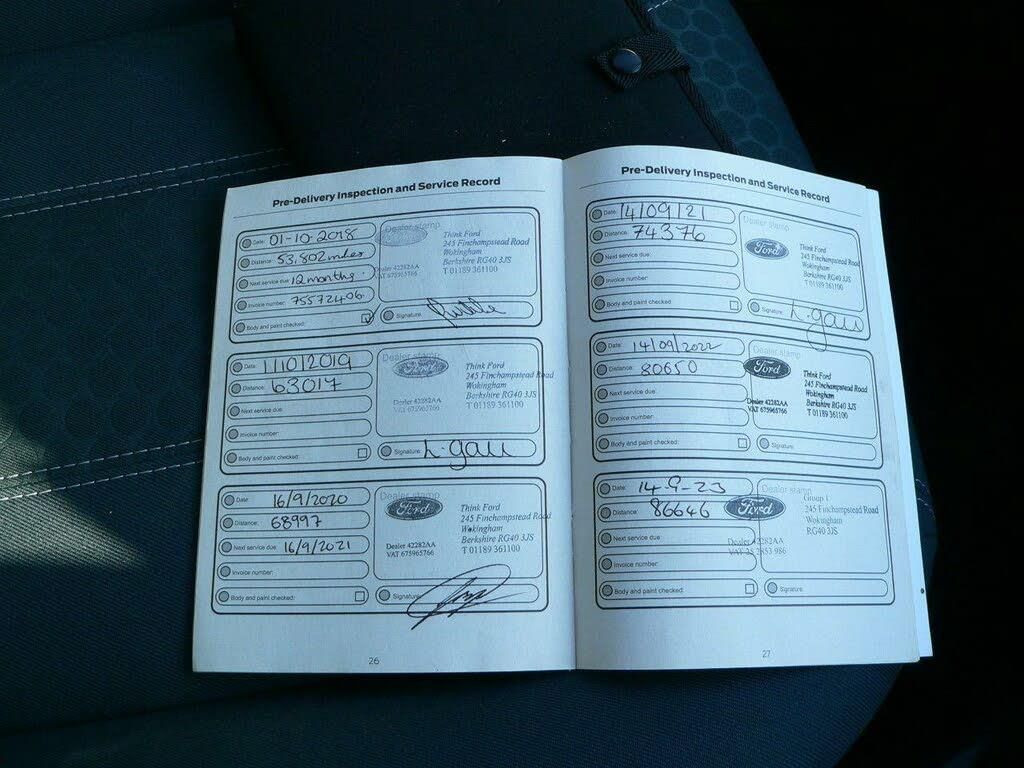 Pre-Delivery Inspection and Service Record
Date: 01-10-2018
Distance: 53,802 miles
Next service due: 12 months.
Invoice number: 75572406.
Body and paint checked:
Dealer stamp
Think Ford
245 Finchampstead Road
Wokingham
Berkshire RG40 3JS
T 01189 361100
Dealer 42282AA
VAT 675965766
Signature:
Date: 1/10/2019
Distance: 63017
Next service due:
Invoice number:
Body and paint checked:
Dealer stamp
Ford
Think Ford
245 Finchampstead Road
Wokingham
Berkshire RG40 3JS
T 01189 361100
Dealer 42282AA
VAT 675965766
Signature: L. gall
Date: 16/9/2020
Distance: 68997
Next service due: 16/9/2021
Invoice number:
Body and paint checked:
Dealer stamp
Ford
Think Ford
245 Finchampstead Road
Wokingham
Berkshire RG40 3JS
T 01189 361100
Dealer 42282AA
VAT 675965766
Signature:
26
Pre-Delivery Inspection and Service Record
Date: 14/09/21
Distance: 74376
Next service due:
Invoice number:
Body and paint checked
Dealer stamp
Ford
Think Ford
245 Finchampstead Road
Wokingham
Berkshire RG40 3JS
T 01189 361100
Signature: L. gall
Date: 14/09/2022
Distance: 80650
Next service due:
Invoice number:
Body and paint checked:
Dealer stamp
Ford
Think Ford
245 Finchampstead Road
Wokingham
Berkshire RG40 3JS
T 01189 361100
Dealer 42282AA
VAT 675965766
Signature:
Date: 14-9-23
Distance: 86646
Next service due:
Invoice number:
Body and paint checked:
Dealer stamp
Ford
Group 1
245 Finchampstead Road
Wokingham
RG40 3JS
Dealer 42282AA
Signature:
27